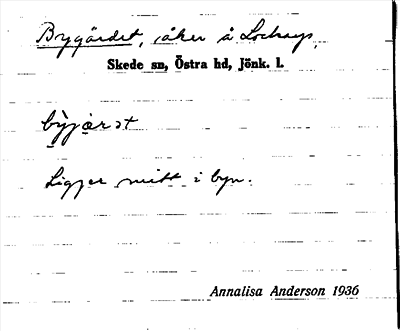 Bygärdet, åker å Lockarps,
Skede sn, Östra hd, Jönk. l.
Ligger mitt i byn.
Annalisa Anderson 1936